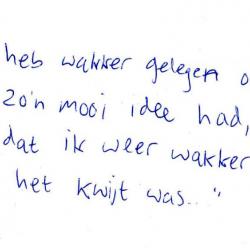 heb wakker gelegen o
zo'n mooi idee had,
dat ik weer wakker
het kwijt was..."